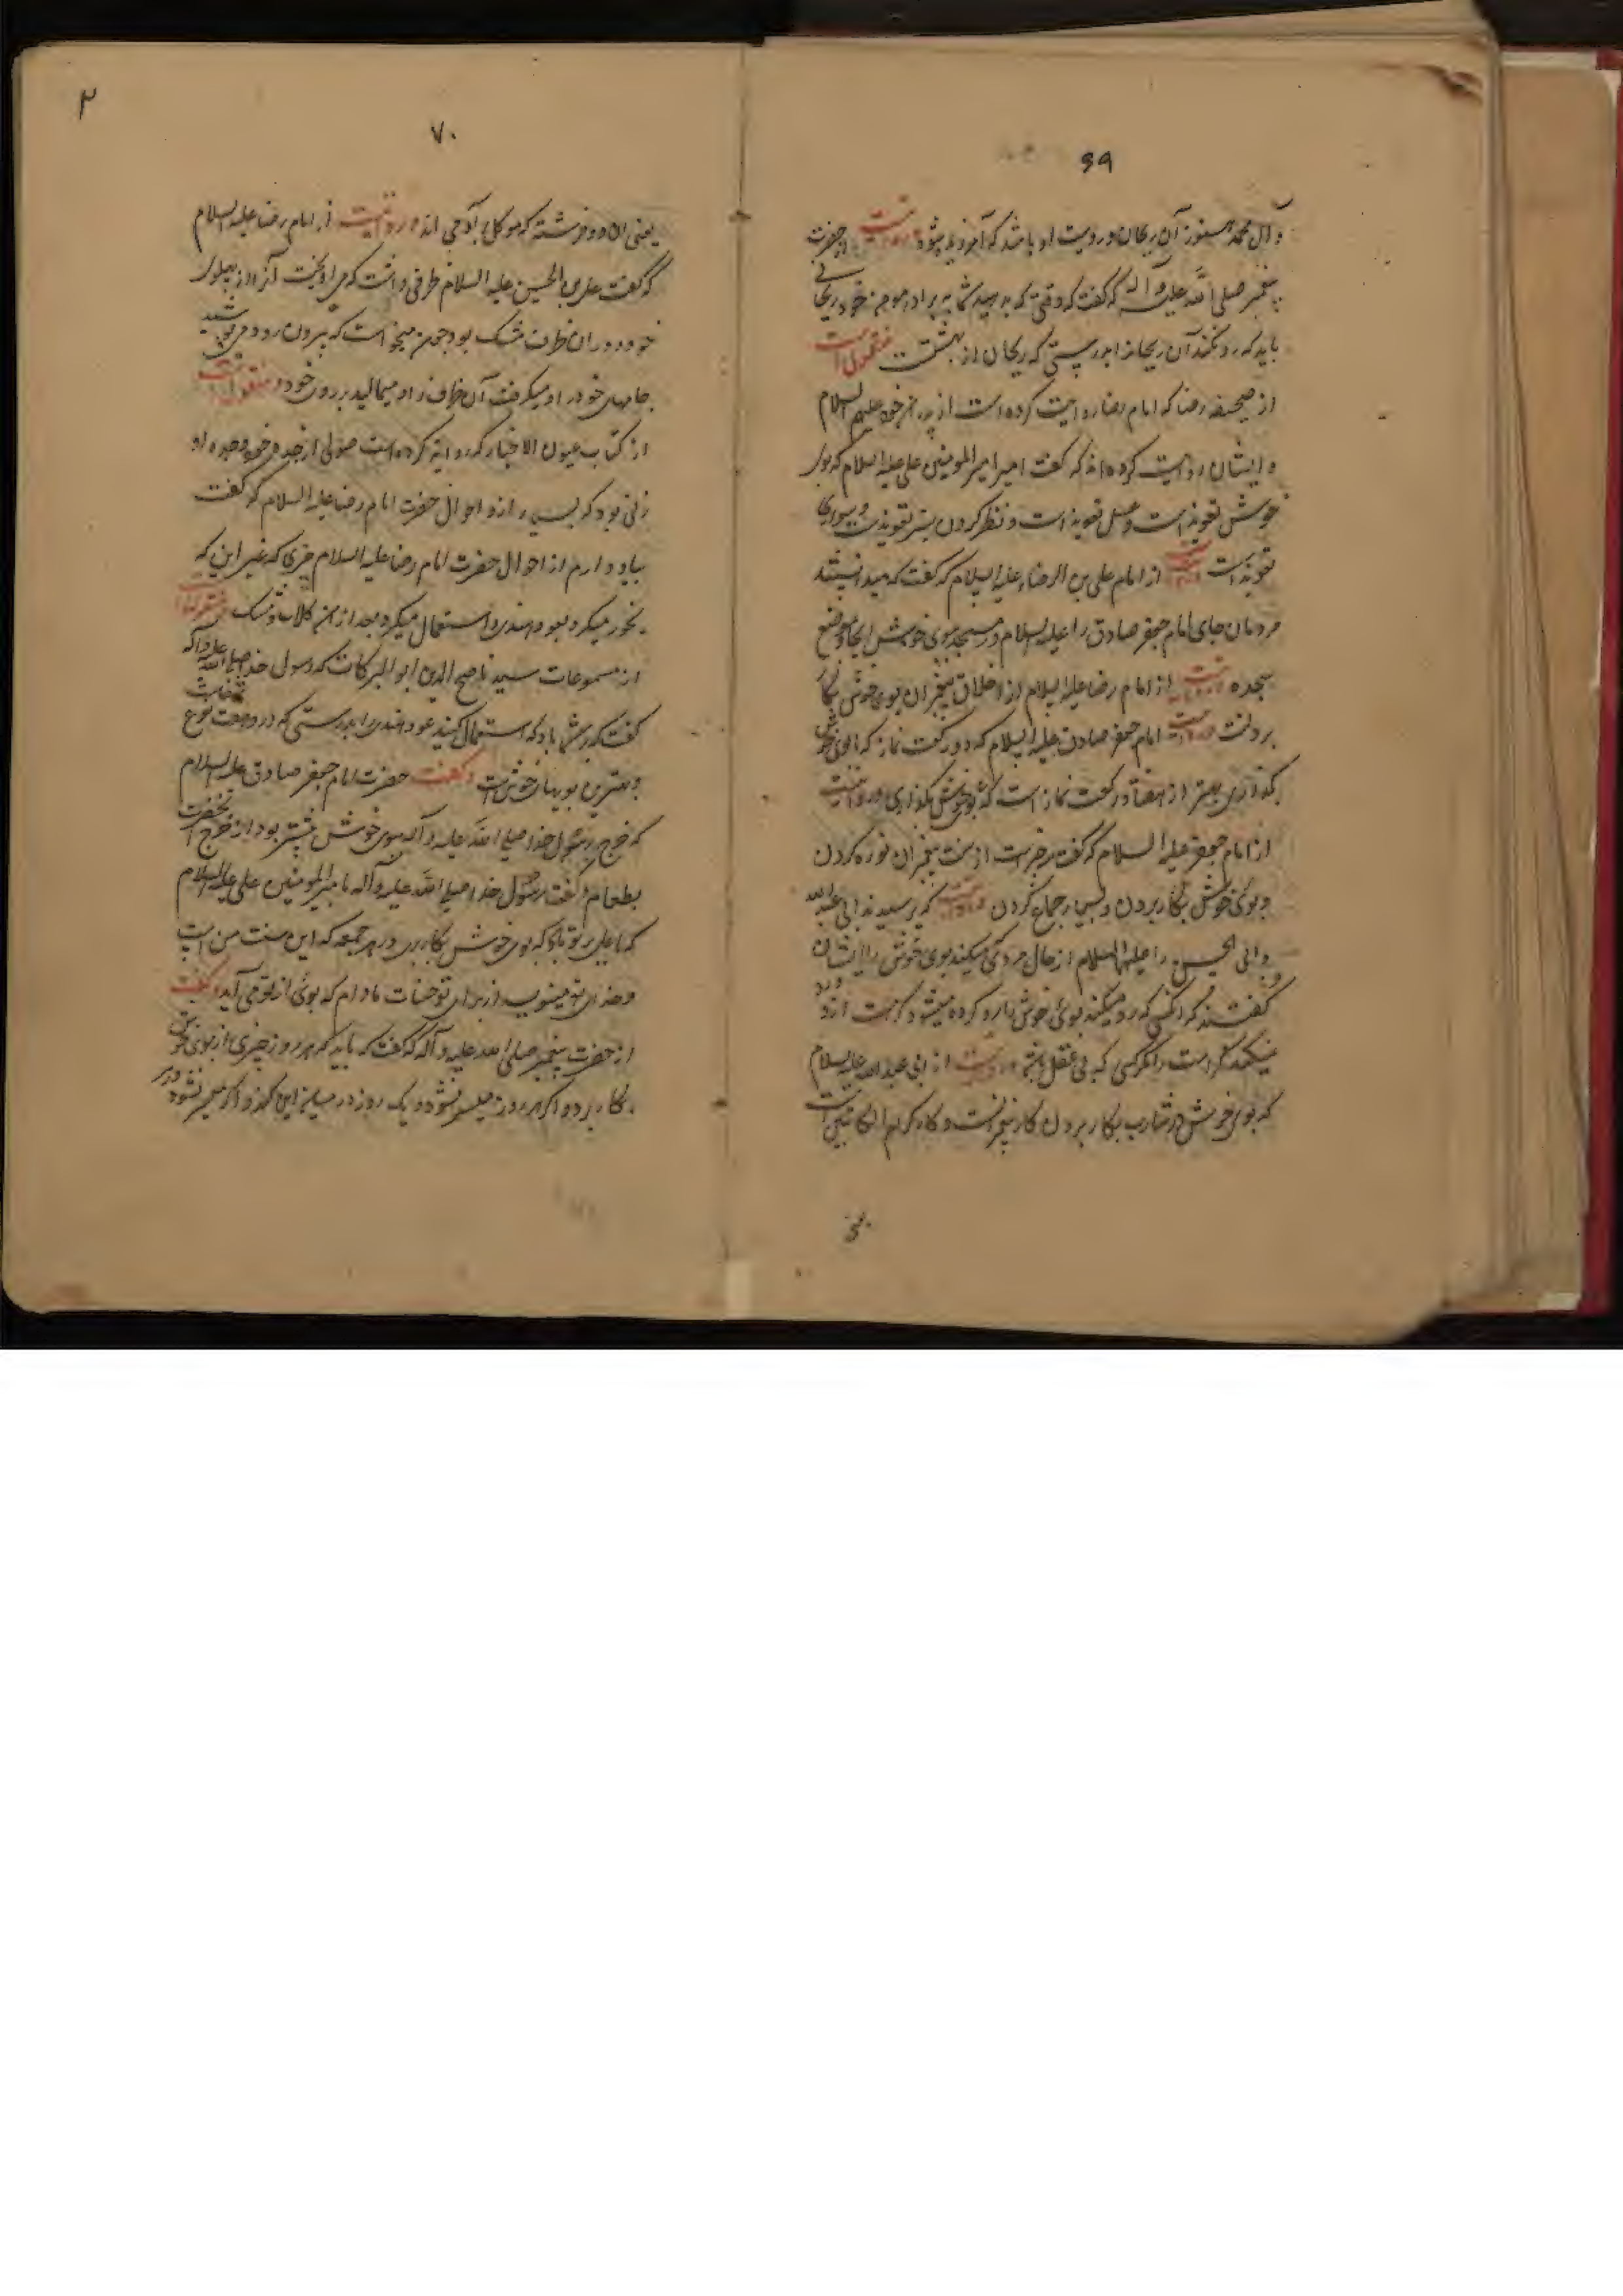 ۶۹
و آل محمد هنوز آن ریحان در دست او باشد که آمرزیده میشود و روایت از حضرت
پیغمبر صلی الله علیه و آله که گفت که وقتی که بدهید شما به برادر مومن خود ریحانی
باید که رد نکند آن ریحانرا بدرستی که ریحان از بهشتست منقولست
از صحیفه رضا که امام رضا روایت کرده است از پدران خود علیهم السلام
و ایشان روایت کرده اند که گفت امیر المومنین علی علیه السلام که بوی
خوش تعویذ است و عسل تعویذ است و نظر کردن بسبز تعویذست و سواری
تعویذ است از امام علی بن الرضا علیه السلام که گفت که میدانستند
مردمان جای امام جعفر صادق را علیه السلام در مسجد ببوی خوش ایجا و موضع
سجده و روایت از امام رضا علیه السلام از اخلاق پیغمبران بوی خوش بکار
بردنت و روایت امام جعفر صادق علیه السلام که دو رکعت نماز که با بوی خوش
بگذاری بهتر از هفتاد رکعت نماز است که بی بوی خوش بگذاری و روایتست
از امام جعفر علیه السلام که گفت سه چیز است از سنت پیغمبران نوره کردن
و بوی خوش بکار بردن و بسیار جماع کردن و روایتست که پرسیدند ابی عبد الله
و ابی الحسن را علیهما السلام از حال مردی که رد میکند بوی خوش را ایشان
گفتند که آنکس که رد میکند بوی خوش را رد کرده میشود کرامت ازو و رد
نمیکند کرامت را مگر کسی که بی عقل باشد و روایت از ابی عبد الله علیه السلام
که بوی خوش در شارب بکار بردن کار پیغمبرانست و کار کرام الکاتبین است
یعنی
۲
۷۰
یعنی آن دو فرشته که موکل بآدمی اند و روایتست از امام رضا علیه السلام
که گفت علی بن الحسین علیه السلام ظرفی داشت که می آویخت آنرا از پهلوی
خود و در آن ظرف مشک بود چون میخواست که بیرون رود و می پوشید
جامهای خود را و میگرفت آن ظرف را و میمالید بر روی خود و منقولست
از کتاب عیون الاخبار که روایة کرده است صولی از جده خود و جده او
زنی بود که پرسید از او احوال حضرت امام رضا علیه السلام که گفت
بیاد ندارم از احوال حضرت امام رضا علیه السلام چیزی که غیر این که
بخور میکرد بعود هندی و استعمال میکرد بعد از من گلاب و مشک و منقولست
از مسموعات سید ناصح الدین ابو البرکات که رسول خدا صلی الله علیه و آله
گفت که بر شما باد که استعمال کنید عود هندی را بدرستی که در و هفت نوع شفاست
و بهترین بویهای خوش است و گفت حضرت امام جعفر صادق علیه السلام
که خرج رسول خدا صلی الله علیه و آله ببوی خوش بیشتر بود از خرج آنحضرت
بطعام و گفت رسول خدا صلی الله علیه و آله با امیر المومنین علی علیه السلام
که یا علی بر تو باد که بوی خوش بکار بری در هر جمعه که این سنت من است
و خدای تو مینویسد از برای تو حسنات مادام که بوی از تو می آید و گفت
از حضرت پیغمبر صلی الله علیه و آله که گفت که باید که هر روز چیزی از بوی خوش
بکار برد و اگر هر روز میسر نشود یک روز در میان این کند و اگر میسر نشود در